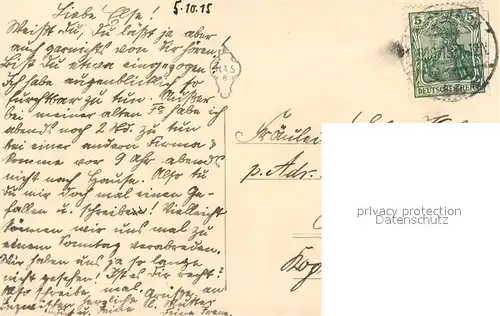 5.10.15
Liebe Else!
Weißt du, du läßt ja aber
auch garnichts von dir hören!
Bist du etwa eingezogen?
Ich habe augenblicklich so
furchtbar zu tun. Außer
bei meiner alten Fa habe ich
abends noch 2 Std. zu tun
bei einer andern Firma &
komme vor 9 Uhr abends
nicht nach Hause. Also tu
du mir doch mal einen Ge-
fallen u. schreibe! Vielleicht
können wir uns mal zu
einem Sonntag verabreden.
Wir haben uns ja so lange
nicht gesehen! Ist es dir recht?
Also schreibe mal. Grüße an
Geschwister herzliche u. Mutter
deine
5 5
DEUTSCHES REICH
Fräulein
p. Adr.
privacy protection
Datenschutz